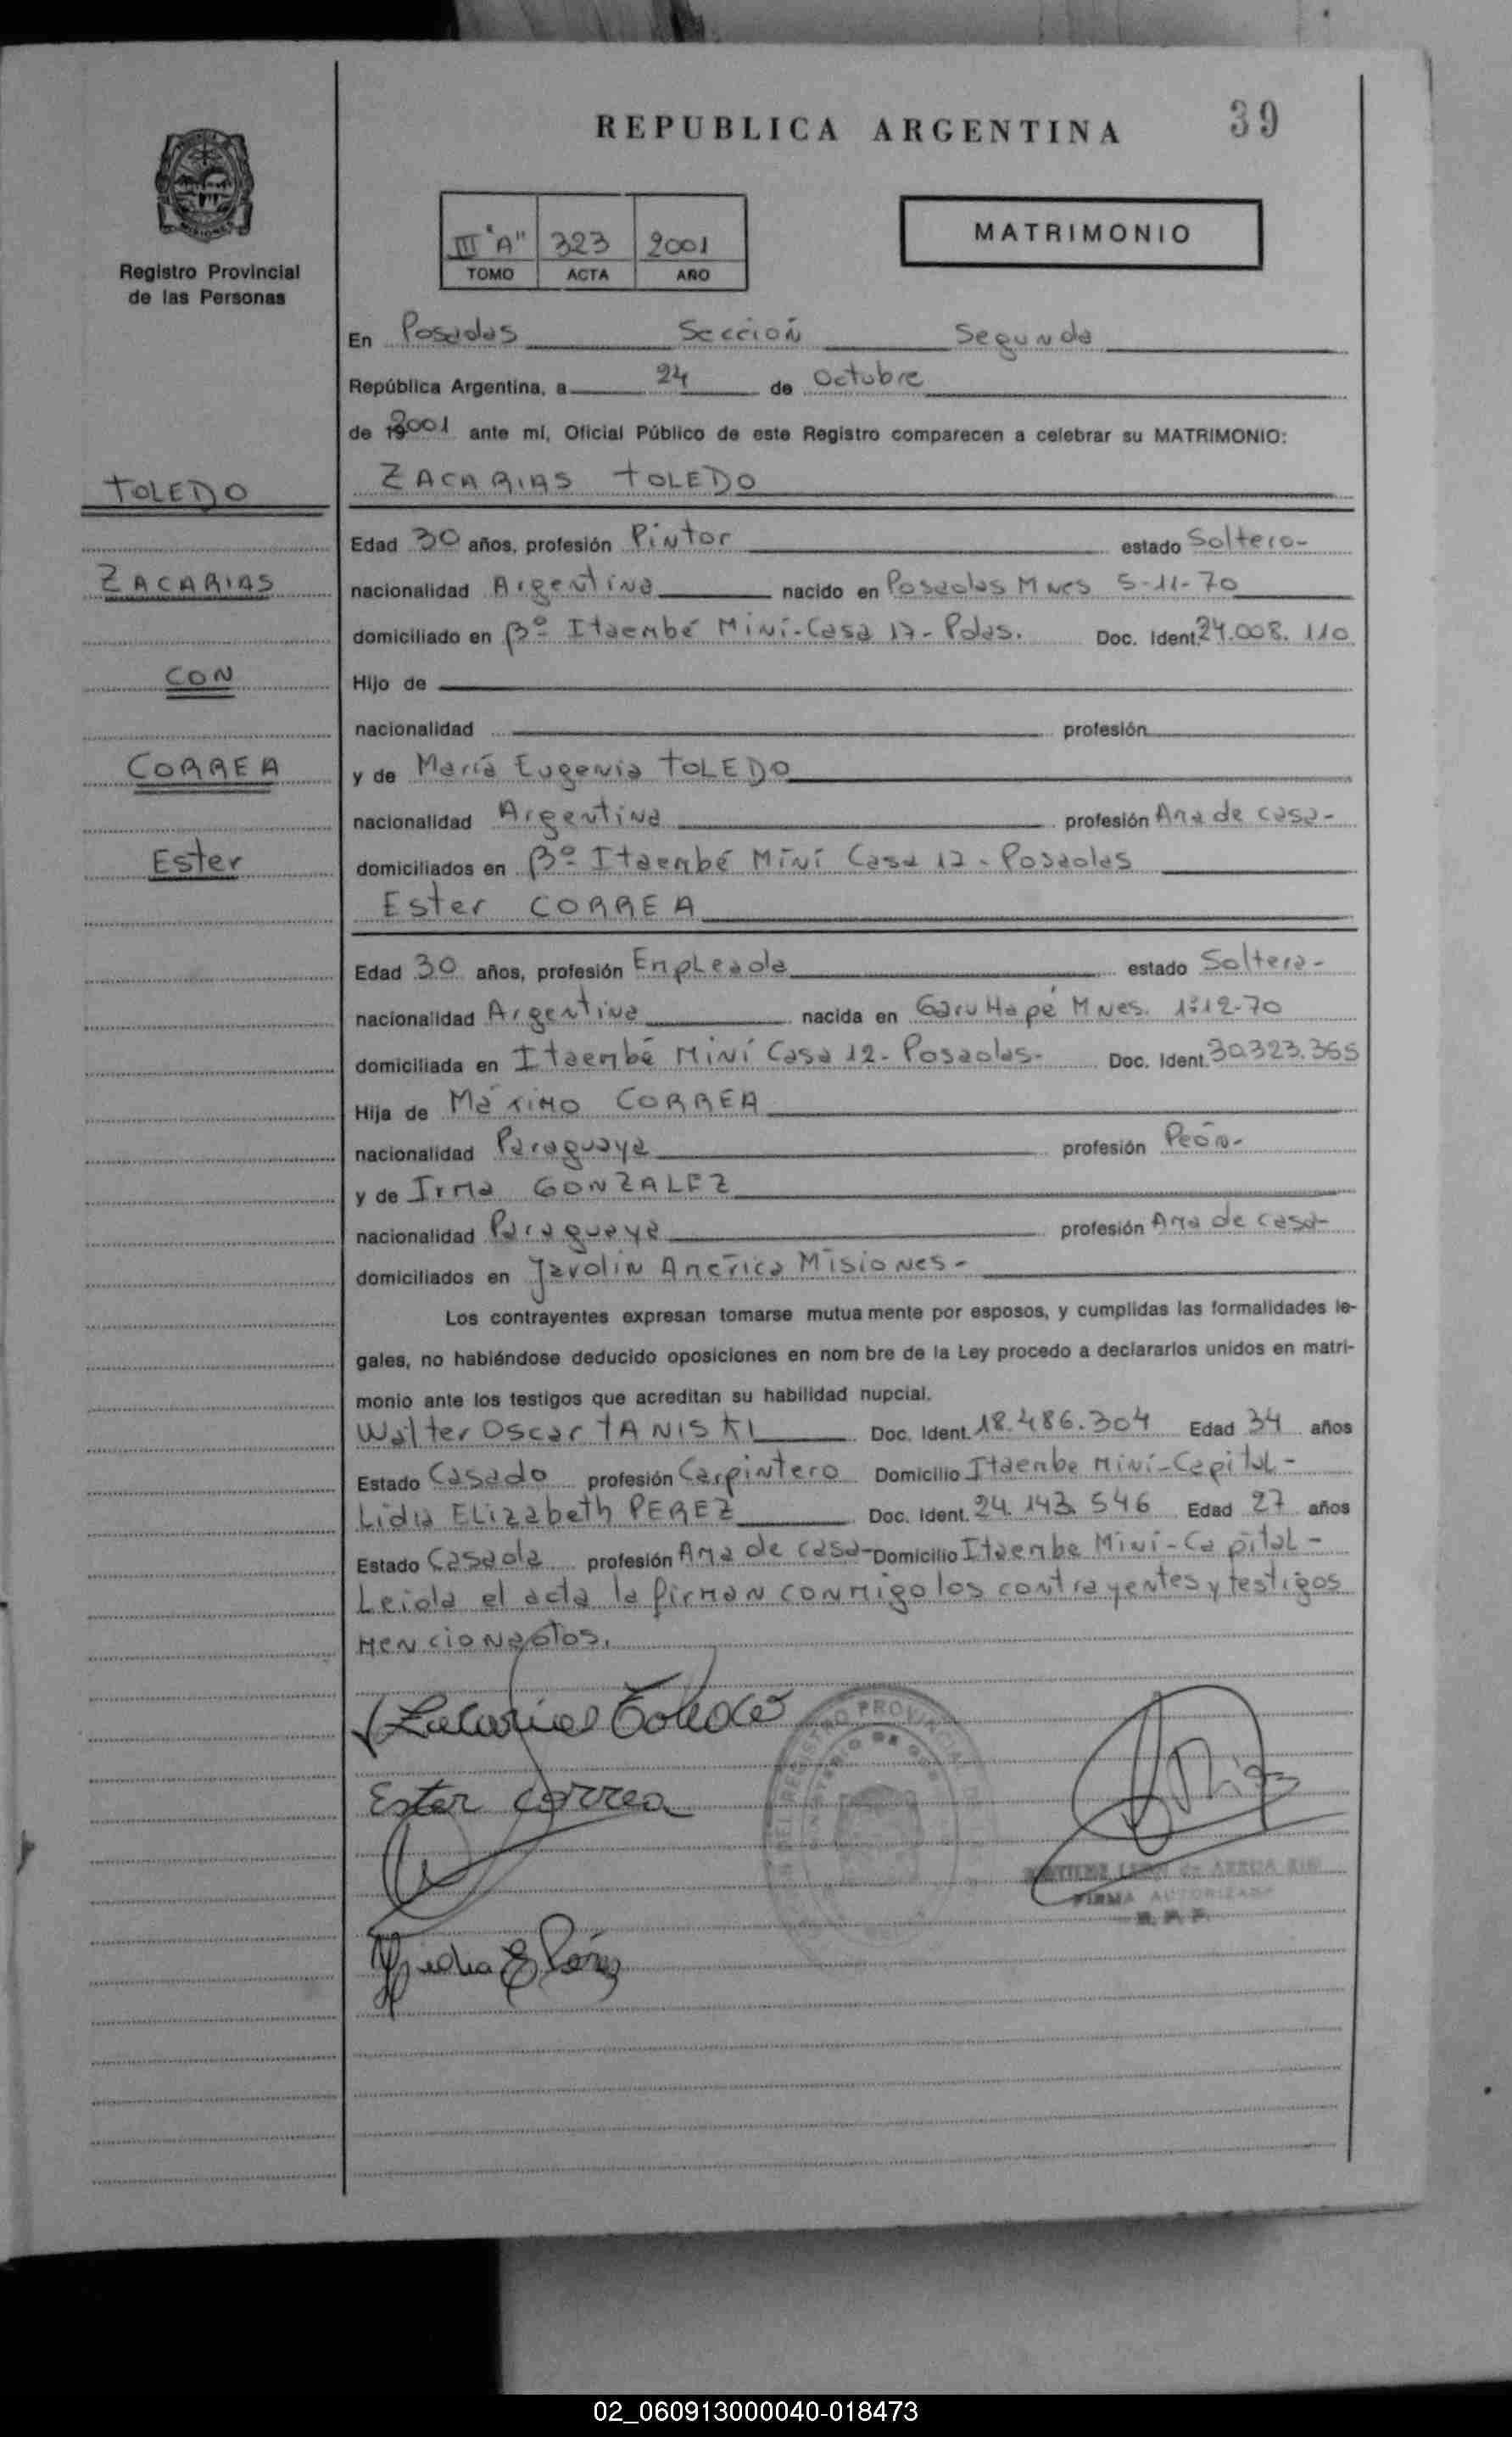 REPUBLICA ARGENTINA
39
Registro Provincial
de las Personas
III "A" 323 2001
TOMO ACTA AÑO
MATRIMONIO
En Posadas Sección Segunda
República Argentina, a 24 de Octubre
de 2001 ante mí, Oficial Público de este Registro comparecen a celebrar su MATRIMONIO:
TOLEDO
ZACARIAS
CON
CORREA
Ester
ZACARIAS TOLEDO
Edad 30 años, profesión Pintor estado Soltero-
nacionalidad Argentina nacido en Posadas Mnes 5-11-70
domiciliado en Bº Itaembé Miní-Casa 17-Pdas. Doc. Ident. 24.008.110
Hijo de
nacionalidad profesión
y de María Eugenia TOLEDO
nacionalidad Argentina profesión Ama de casa-
domiciliados en Bº Itaembé Miní Casa 17-Posadas
Ester CORREA
Edad 30 años, profesión Empleada estado Soltera-
nacionalidad Argentina nacida en Garuhapé Mnes. 1-12-70
domiciliada en Itaembé Miní Casa 12-Posadas- Doc. Ident. 30.323.365
Hija de Máximo CORREA
nacionalidad Paraguaya profesión Peón-
y de Irma GONZALEZ
nacionalidad Paraguaya profesión Ama de casa-
domiciliados en Jardín América Misiones-
Los contrayentes expresan tomarse mutua mente por esposos, y cumplidas las formalidades le-
gales, no habiéndose deducido oposiciones en nom bre de la Ley procedo a declararlos unidos en matri-
monio ante los testigos que acreditan su habilidad nupcial.
Walter Oscar TANISKI Doc. Ident. 18.486.304 Edad 34 años
Estado Casado profesión Carpintero Domicilio Itaembe Miní-Capital-
Lidia Elizabeth PEREZ Doc. Ident. 24.143.546 Edad 27 años
Estado Casada profesión Ama de casa- Domicilio Itaembe Miní-Capital-
Leida el acta la firman conmigo los contrayentes y testigos
mencionados.
Zacarias Toledo
Ester Correa
FIRMA AUTORIZADA
R. P. P.
02_060913000040-018473